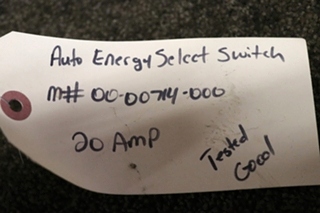 Auto Energy Select Switch
M# 00-00714-000
20 AMP
Tested
Good